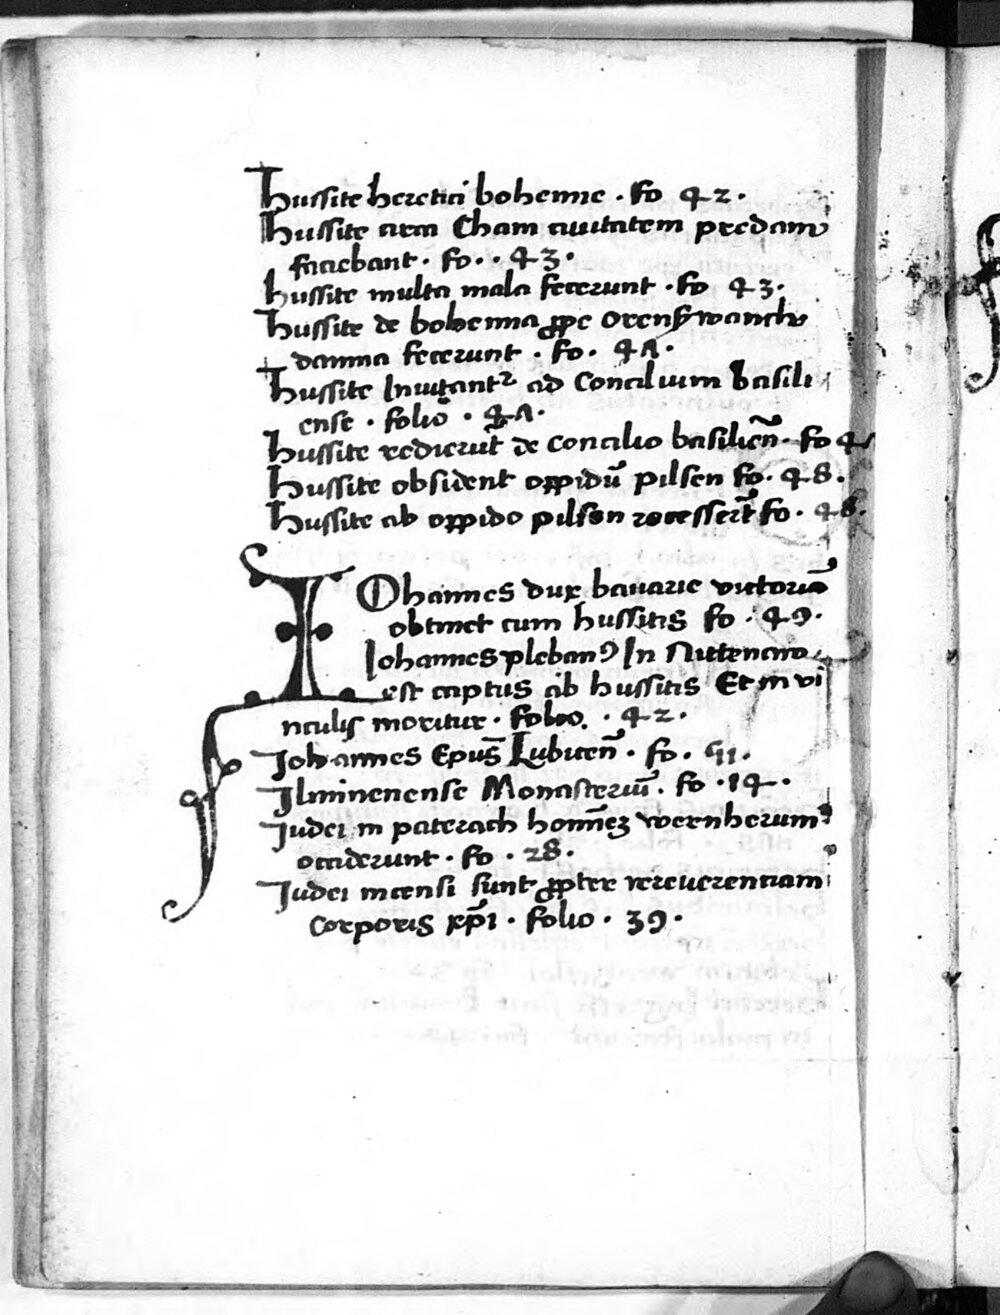 Hussite heretici bohemie · fo 42 ·
Hussite circa Cham ciuitatem predam
faciebant · fo · · 43 ·
hussite multa mala fecerunt · fo 43 ·
Hussite de bohemia ꝓpe
damna fecerunt · fo · 4Λ ·
Hussite Inuitantᷣ ad Concilium basili
ense · folio · 4Λ ·
Hussite redierūt de concilio basilien̄ · fo
Hussite obsident oppidū pilsen fo · 48 ·
Hussite ab oppido pilsen recesserūt fo · 48 ·
IOhannes dux bauarie victoriā
obtinet cum hussitis fo · 49 ·
Iohannes plebanꝰ In
est captus ab hussitis Et in vi
nculis moritur · folio · 42 ·
Iohannes Ep̄us Lubucen̄ · fo · 41 ·
Ilminenense Monasteriū · fo · 14 ·
Iudei in paterach homīeꝫ wernherum
occiderunt · fo · 28 ·
Iudei incensi sunt ꝓpter irreuerentiam
Corporis xp̄i · folio · 39 ·